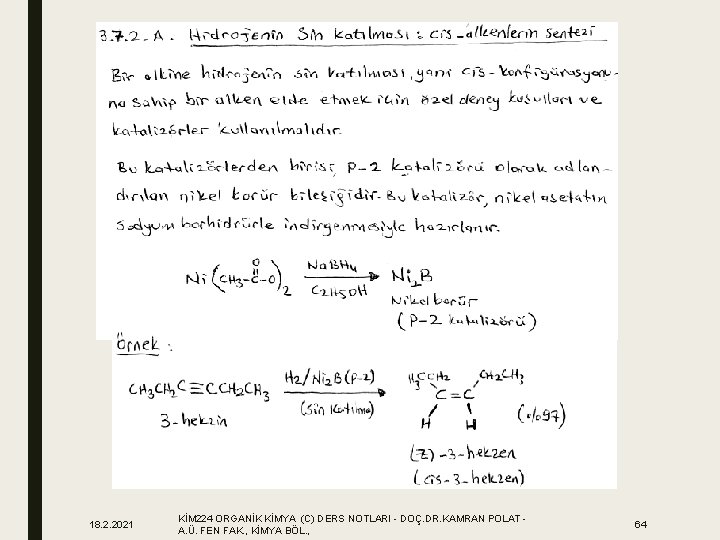 3.7.2-A. Hidrojenin Sin Katılması: cis-alkenlerin sentezi
Bir alkine hidrojenin sin katılması, yani cis-konfigürasyonu-
na sahip bir alken elde etmek için özel deney koşulları ve
katalizörler kullanılmalıdır.
Bu katalizörlerden birisi, P-2 katalizörü olarak adlan-
dırılan nikel borür bileşiğidir. Bu katalizör, nikel asetatın
Sodyum borhidrürle indirgenmesiyle hazırlanır.
Ni(CH3-C(=O)-O)2 NaBH4 / C2H5OH → Ni2B
Nikel borür
(P-2 katalizörü)
Örnek:
CH3CH2C≡CCH2CH3 H2/Ni2B(P-2) (Sin Katılma) → H3CCH2 CH2CH3
C=C
H H (%97)
3-hekzin
(Z)-3-hekzen
(cis-3-hekzen)
18.2.2021
KİM224 ORGANİK KİMYA (C) DERS NOTLARI - DOÇ.DR.KAMRAN POLAT -
A.Ü. FEN FAK., KİMYA BÖL.,
64